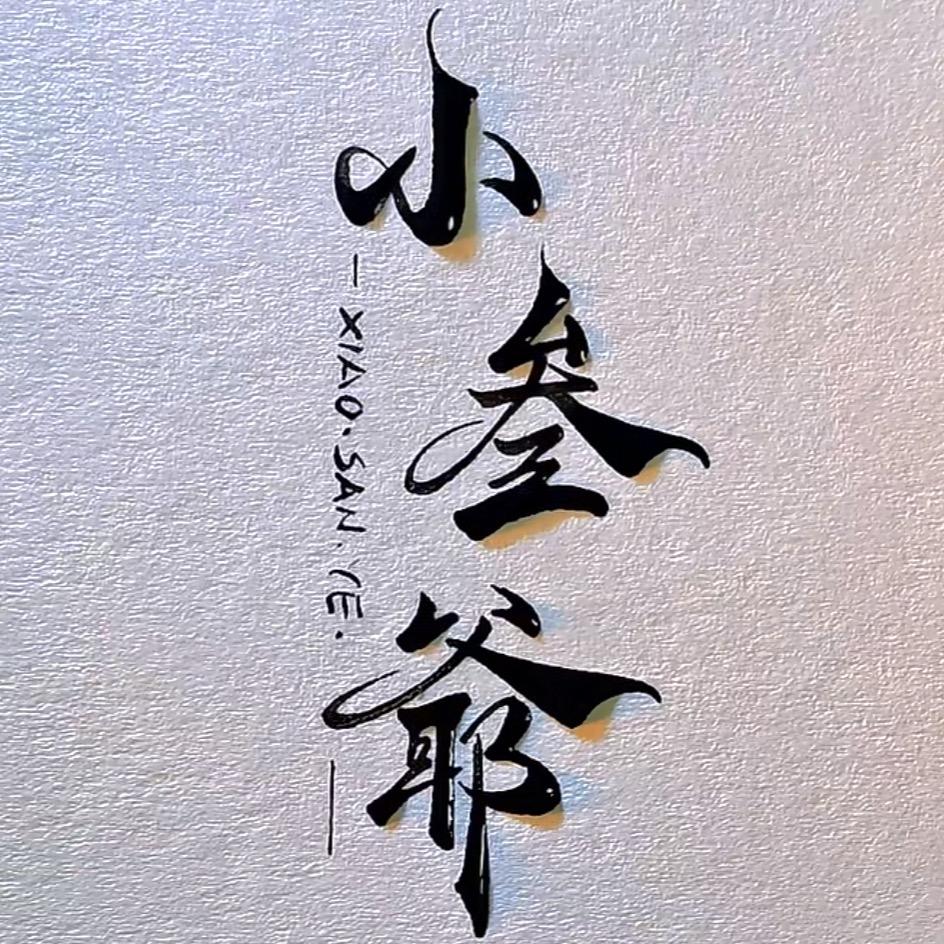 小叁爺
—XIAO.SAN.YE.—